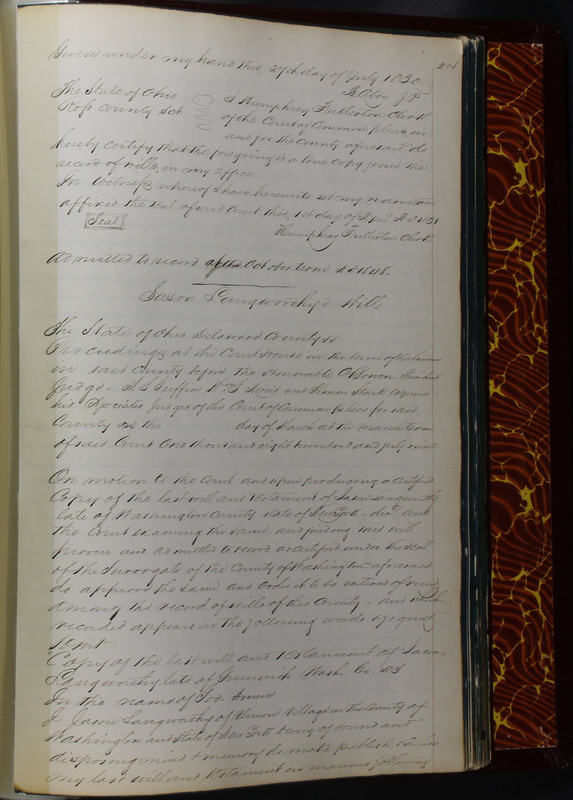 Given under my hand this 27th day of July 1830
J.P.
The State of Ohio
Ross County Sct
I Humphrey Fullerton Clerk
of the Court of Common pleas in
and for the County aforesaid do
hereby certify that the foregoing is a true Copy from the
record of wills in my office
In witness whereof I have hereunto set my name and
affixed the seal of said Court this 1st day of April AD 1831
Seal
Humphrey Fullerton Clerk
Admitted to record October term AD 1848.
Jason Langworthy's Will
The State of Ohio Delaware County ss
Proceedings at the Court House in the town of Delaware
in said County before The Honorable O Bowen President
Judge, and Thomas Stark Esquires
his Associates Judges of the Court of Common pleas for said
County on the day of March at the March term
of said Court One thousand eight hundred and forty nine
On motion to the Court and upon producing a certified
Copy of the last will and testament of Jason Langworthy
late of Washington County State of New York, decd and
the Court examing the same, and finding said will
proven and admitted to record as certified under the seal
of the Surrogate of the County of Washington aforesaid
do approve the same and order it to be entered of record
among the record of Wills of this County, and which
recorded appears in the following words & figures
to wit
Copy of the last will and testament of Jason
Langworthy late of Greenwich Wash. Co. NY
In the name of God Amen
I Jason Langworthy of Union Village in the County of
Washington and State of New York being of sound and
disposing mind & memory do make publish
my last will and testament in manner following